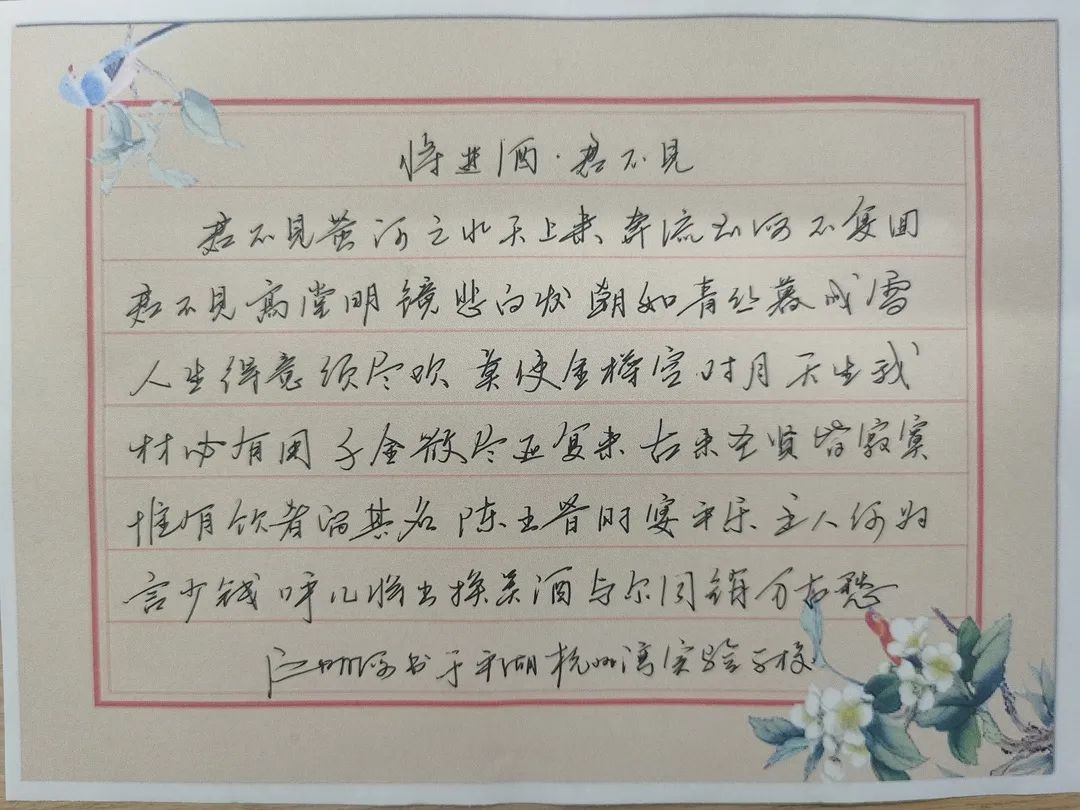 将进酒·君不见
君不见黄河之水天上来 奔流到河不复回
君不见高堂明镜悲白发 朝如青丝暮成雪
人生得意须尽欢 莫使金樽空对月 天生我
材必有用 千金散尽还复来 古来圣贤皆寂寞
惟有饮者留其名 陈王昔时宴平乐 主人何为
言少钱 呼儿将出换美酒 与尔同销万古愁
书于平湖杭州湾实验学校